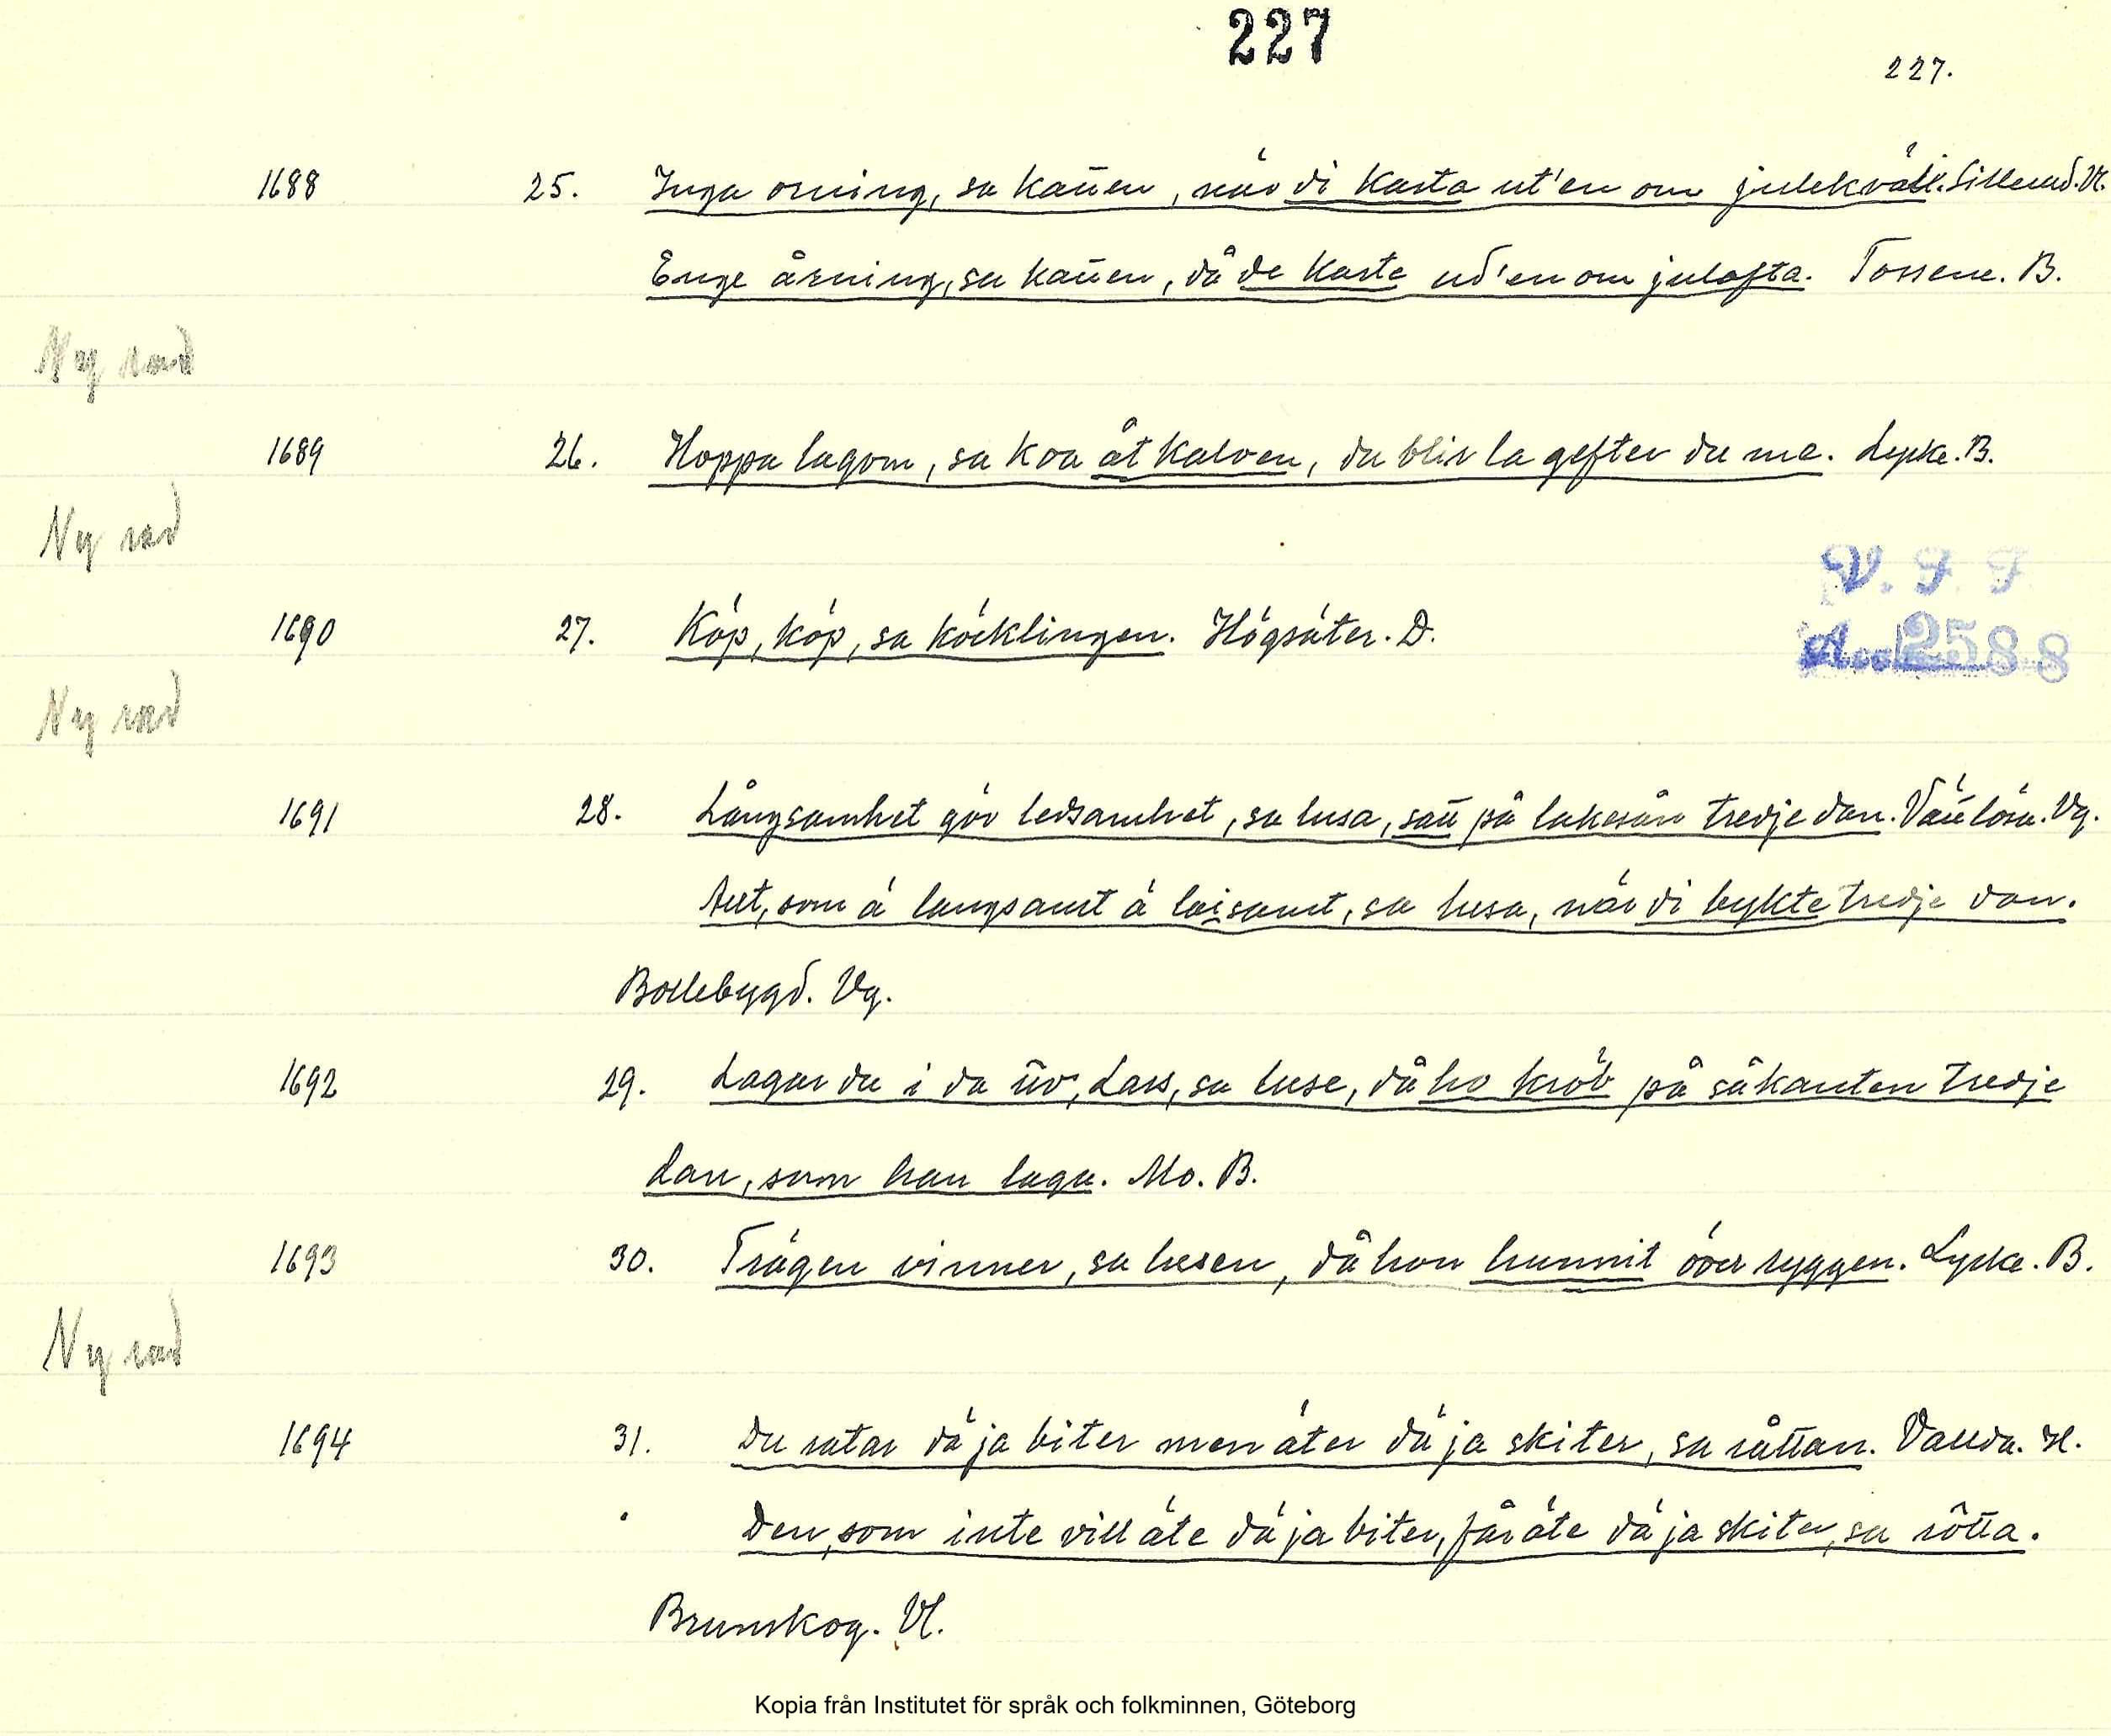 227
227.
1688 25. Inga orning, sa katten, när di kasta ut'en om julekväll. Sillerud. Vl.
Enge årning, sa katten, då de kaste ud'en om julafta. Tossene. B.
Ny rad
1689 26. Hoppa lagom, sa koa åt kalven, du blir la gefter du me. Lycke. B.
Ny rad
V. F F
1690 27. Köp, köp, sa köcklingen. Högsäter. D.
Acc 2588
Ny rad
1691 28. Långsamhet gör ledsamhet, sa lusa, satt på lakesån tredje dan. Vättlösa. Vg.
Aut, som ä langsamt ä laisamt, sa lusa, när di bykte tredje dan.
Bollebygd. Vg.
1692 29. Lagar du i da ur, Lars, sa luse, då ho kröb på såkanten tredje
dan, som han laga. Mo. B.
1693 30. Trägen vinner, sa lusen, då hon hunnit över ryggen. Lycke. B.
Ny rad
1694 31. Du ratar dä ja biter men äter dä ja skiter, sa råttan. Vallda. H.
Den, som inte vill äte dä ja biter, får äte dä ja skiter, sa rôtta.
Brunskog. Vl.
Kopia från Institutet för språk och folkminnen, Göteborg